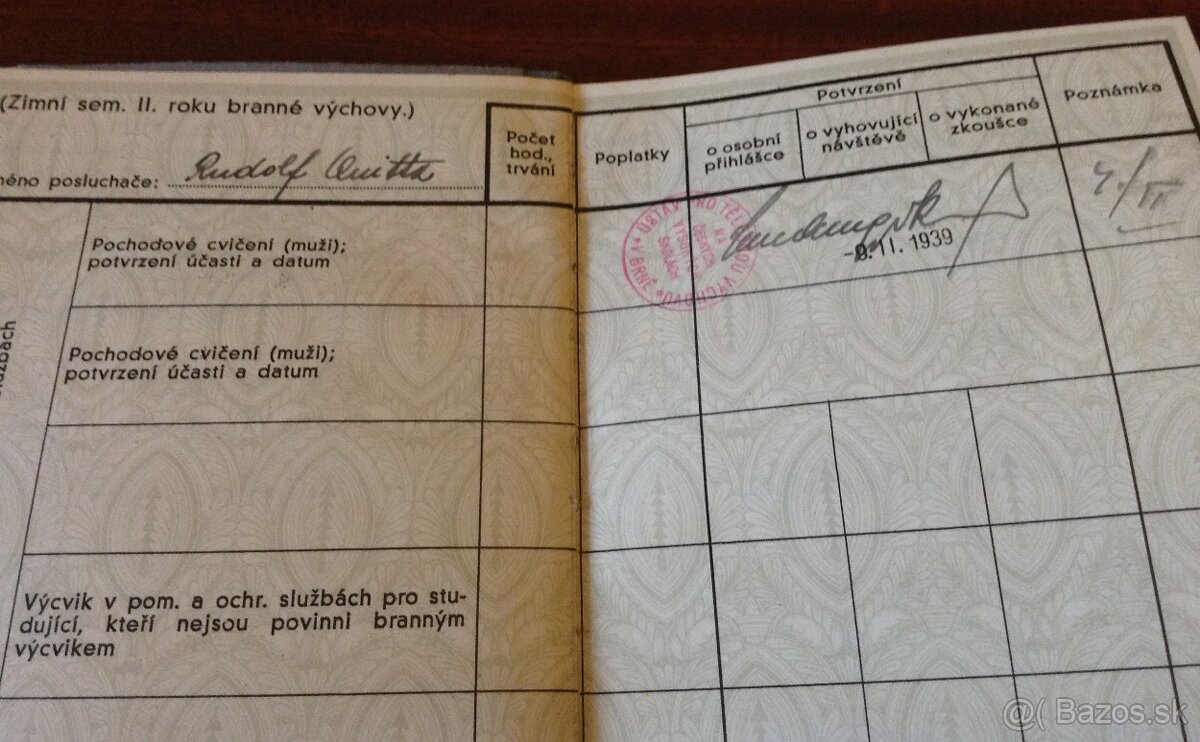 (Zimní sem. II. roku branné výchovy.)
méno posluchače: Rudolf
Počet
hod.,
trvání
Poplatky
Potvrzení
o osobní
přihlášce
o vyhovující
návštěvě
o vykonané
zkoušce
Poznámka
Pochodové cvičení (muži);
potvrzení účasti a datum
ÚSTAV PRO TĚL OU VÝCHOVU
V BRNĚ
NA
ČESKÝCH
VYSOK
ŠKOLÁCH
II. 1939
Pochodové cvičení (muži);
potvrzení účasti a datum
Výcvik v pom. a ochr. službách pro stu-
dující, kteří nejsou povinni branným
výcvikem
@( Bazos.sk